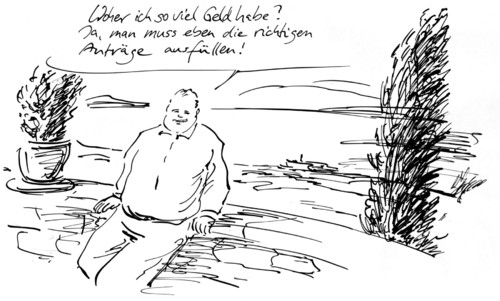 Woher ich so viel Geld habe?
Ja, man muss eben die richtigen
Anträge ausfüllen!